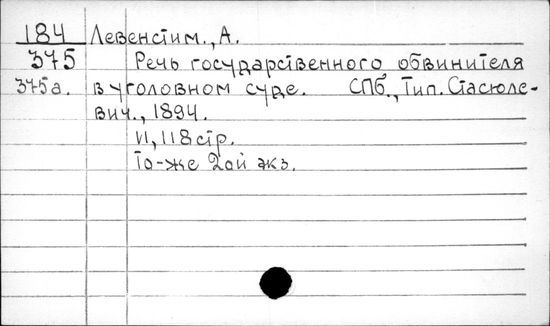 184 Левенстим., А.
375 Речь государственного обвинителя
375а. в уголовном суде. СПб., Тип. Стасюле-
вич., 1894.
VI, 118 стр.
То-же 2ой экз.